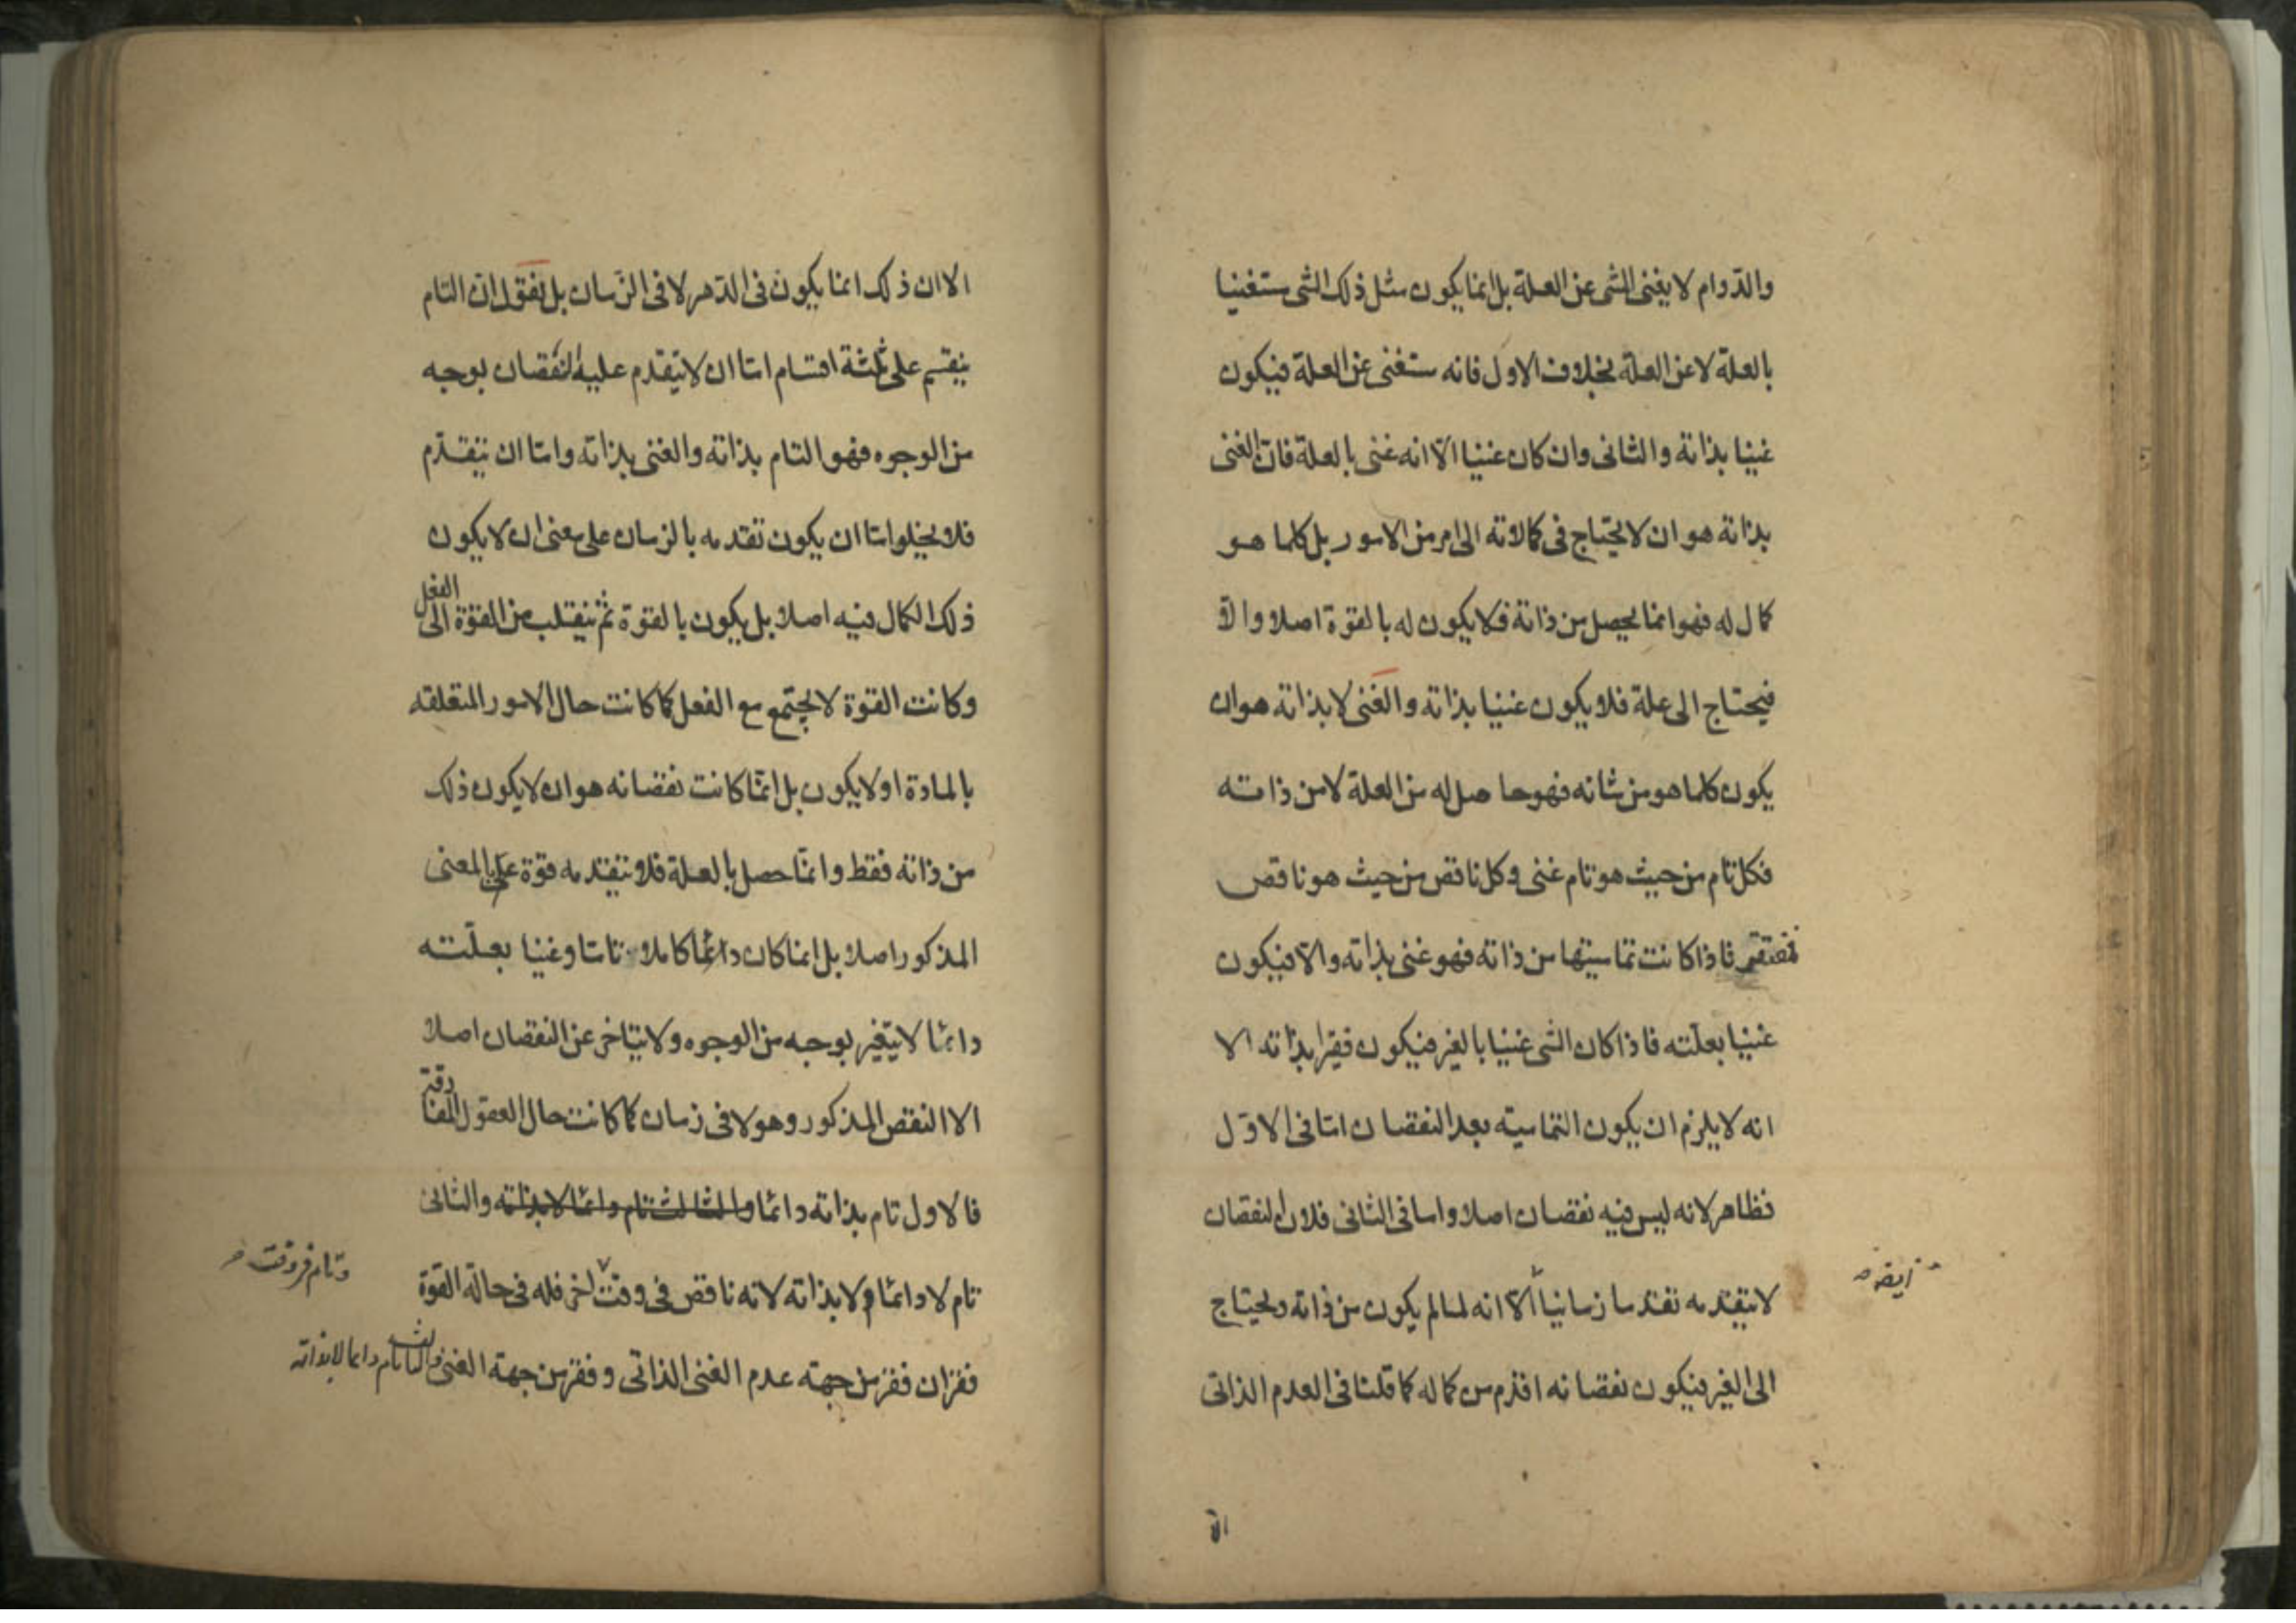 والدّوام لا يغنى الشى عن العلة بل انما يكون مثل ذلك الشى مستغنيا
بالعلة لا عن العلة بخلاف الاول فانه مستغنى عن العلة فيكون
غنيا بذاته والثانى وان كان غنيا الّا انه غنى بالعلة فان الغنى
بذاته هو ان لا يحتاج فى كمالاته الى امر من الامور بل كلما هو
كمال له فهو انما يحصل من ذاته فلا يكون له بالقوة اصلا والّا
فيحتاج الى علة فلا يكون غنيا بذاته والغنى لا بذاته هو ان
يكون كلما هو من شانه فهو حاصل له من العلة لا من ذاته
فكل تام من حيث هو تام غنى وكل ناقص من حيث هو ناقص
مفتقر فاذا كانت تماميتها من ذاته فهو غنى بذاته والّا فيكون
غنيا بعلّته فاذا كان الشى غنيا بالغير فيكون فقيرا بذاته الا
انه لا يلزم ان يكون التمامية بعد النقصان امّا فى الاوّل
فظاهر لانه ليس فيه نقصان اصلا واما فى الثانى فلان النقصان
ايضا
لا يتقدمه تقدما زمانيا الّا انه لما لم يكون من ذاته ويحتاج
الى الغير فيكون نقصانه اقدم من كماله كما قلنا فى العدم الذاتى
الّا
الا ان ذلك انما يكون فى الدّهر لا فى الزّمان بل نقول ان التام
ينقسم على ثلثة اقسام امّا ان لا يتقدم عليه النقصان بوجه
من الوجوه فهو التام بذاته والغنى بذاته وامّا ان يتقدّم
فلا يخلوا امّا ان يكون تقدمه بالزمان على معنى ان لا يكون
ذلك الكمال فيه اصلا بل يكون بالقوة ثم ينقلب من القوّة الى الفعل
وكانت القوة لا يجتمع مع الفعل كما كانت حال الامور المتعلقه
بالمادة او لا يكون بل انّما كانت نقصانه هو ان لا يكون ذلك
من ذاته فقط وانّما حصل بالعلة فلا يتقدمه قوّة على المعنى
المذكور اصلا بل انما كان دائما كاملا تامّا وغنيا بعلّته
دائما لا يتغير بوجه من الوجوه ولا يتاخر عن النقصان اصلا
الا النقص المذكور وهو لا فى زمان كما كانت حال العقول المفارقة
فالاول تام بذاته دائما والثالث تام دائما لا بذاته والثانى
تام لا دائما ولا بذاته لانه ناقص فى وقت اخر فله فى حالة القوة
وتام فى وقت
فقران فقر من جهته عدم الغنى الذاتى وفقر من جهة الغنى والثالث تام دائما لا بذاته